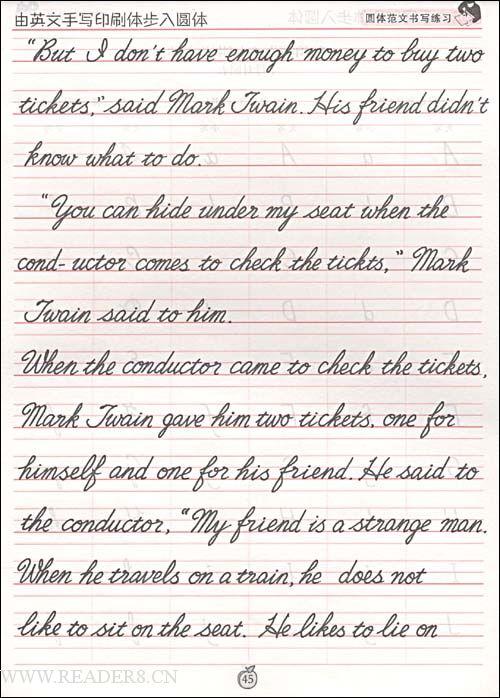 由英文手写印刷体步入圆体
圆体范文书写练习
"But I don't have enough money to buy two
tickets," said Mark Twain. His friend didn't
know what to do.
"You can hide under my seat when the
cond- uctor comes to check the tickts," Mark
Twain said to him.
When the conductor came to check the tickets,
Mark Twain gave him two tickets, one for
himself and one for his friend. He said to
the conductor, "My friend is a strange man.
When he travels on a train, he does not
like to sit on the seat. He likes to lie on
45
WWW.READER8.CN